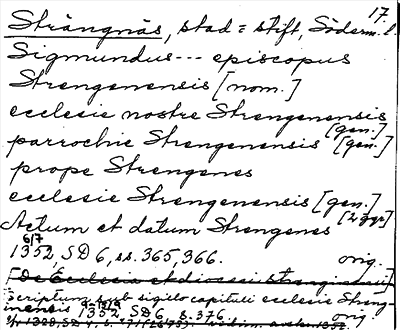 17.
Strängnäs, stad = stift, Söderm. l
Sigmundus --- episcopus
Strengenensis [nom.]
ecclesie nostre Strengenensis [gen.]
parrochie Strengenensis [gen.]
prope Strengenes
ecclesie Strengenensis [gen.] [2 ggr]
Actum et datum Strengenes
6/7
1352, SD 6, ss. 365, 366. orig.
[De Ecclesia et diocesi
Scriptum sub sigillo capituli ecclesie Streng-
inensis 1352 SD 6 s. 376 orig